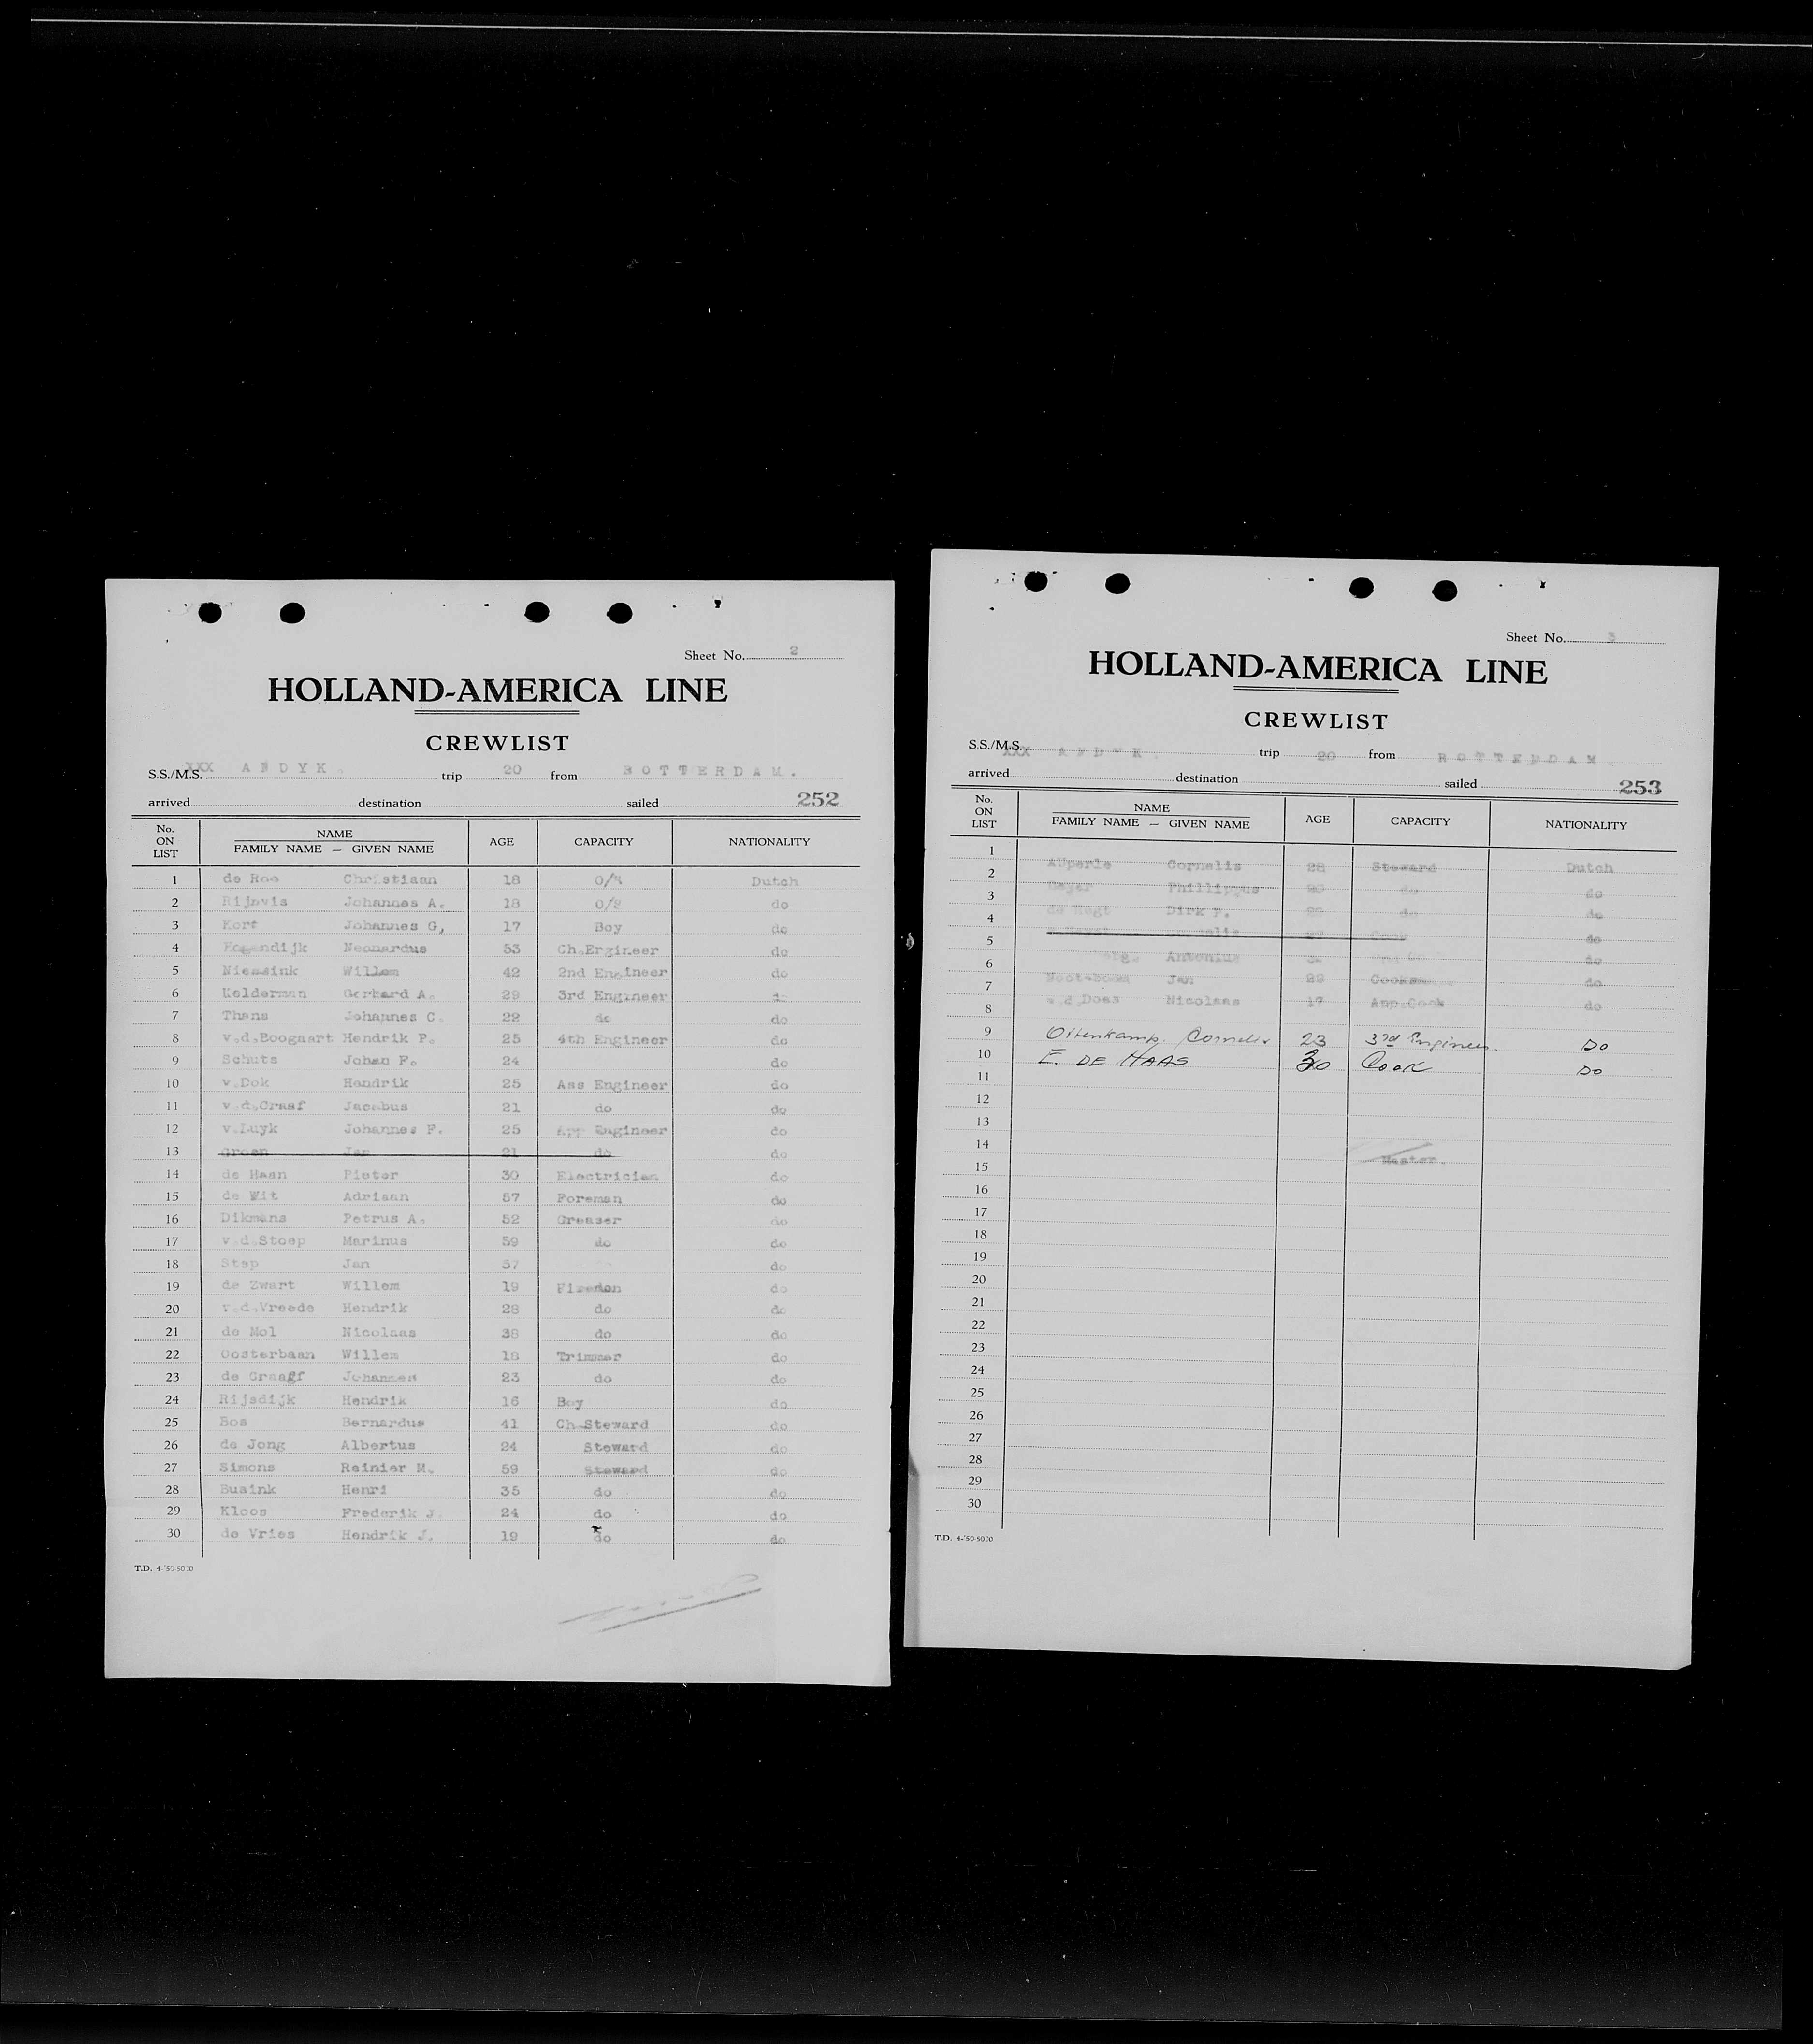 Sheet No. 2
HOLLAND-AMERICA LINE
CREWLIST
S.S./M.S. XXX ANDYK. trip 20 from ROTTERDAM.
arrived destination sailed 252
No. ON LIST NAME FAMILY NAME — GIVEN NAME AGE CAPACITY NATIONALITY
1 de Roo Christiaan 18 O/S Dutch
2 Rijnvis Johannes A. 18 O/S do
3 Kort Johannes G, 17 Boy do
4 Neonardus 53 Ch.Engineer do
5 Niessink Willem 42 2nd Engineer do
6 Kelderman Gerhard A. 29 3rd Engineer do
7 Thans Johannes C. 22 do do
8 v.d.Boogaart Hendrik P. 25 4th Engineer do
9 Schuts Johan F. 24 do
10 v.Dok Hendrik 25 Ass Engineer do
11 v.d.Graaf Jacobus 21 do do
12 v.Luyk Johannes F. 25 App Engineer do
13 Groen Jan 21 do do
14 de Haan Pieter 30 Electrician do
15 de Wit Adriaan 57 Foreman do
16 Dikmans Petrus A. 52 Greaser do
17 v.d.Stoep Marinus 59 do do
18 Stap Jan 57 do
19 de Zwart Willem 19 Fireman do
20 v.d.Vreede Hendrik 28 do do
21 de Mol Nicolaas 38 do do
22 Oosterbaan Willem 18 Trimmer do
23 de Graaff Johannes 23 do do
24 Rijsdijk Hendrik 16 Boy do
25 Bos Bernardus 41 Ch.Steward do
26 de Jong Albertus 24 Steward do
27 Simons Reinier M. 59 Steward do
28 Busink Henri 35 do do
29 Kloos Frederik J. 24 do do
30 de Vries Hendrik J. 19 do do
T.D. 4-'50-5000
Sheet No. 3
HOLLAND-AMERICA LINE
CREWLIST
S.S./M.S. XXX ANDYK. trip 20 from ROTTERDAM.
arrived destination sailed 253
No. ON LIST NAME FAMILY NAME — GIVEN NAME AGE CAPACITY NATIONALITY
1
2 Cornelis 28 Steward Dutch
3 Phillippus do do
4 Dirk P. do do
5 Cornelis 27 Cook do
6 Antonius do
7 Noteboom Jan 22 do
8 v.d.Does Nicolaas 17 App.Cook do
9 Ottenkamp. Cornelis 23 3rd Engineer. DO
10 E. DE HAAS 30 Cook DO
11
12
13
14
15 Master.
16
17
18
19
20
21
22
23
24
25
26
27
28
29
30
T.D. 4-'50-5000